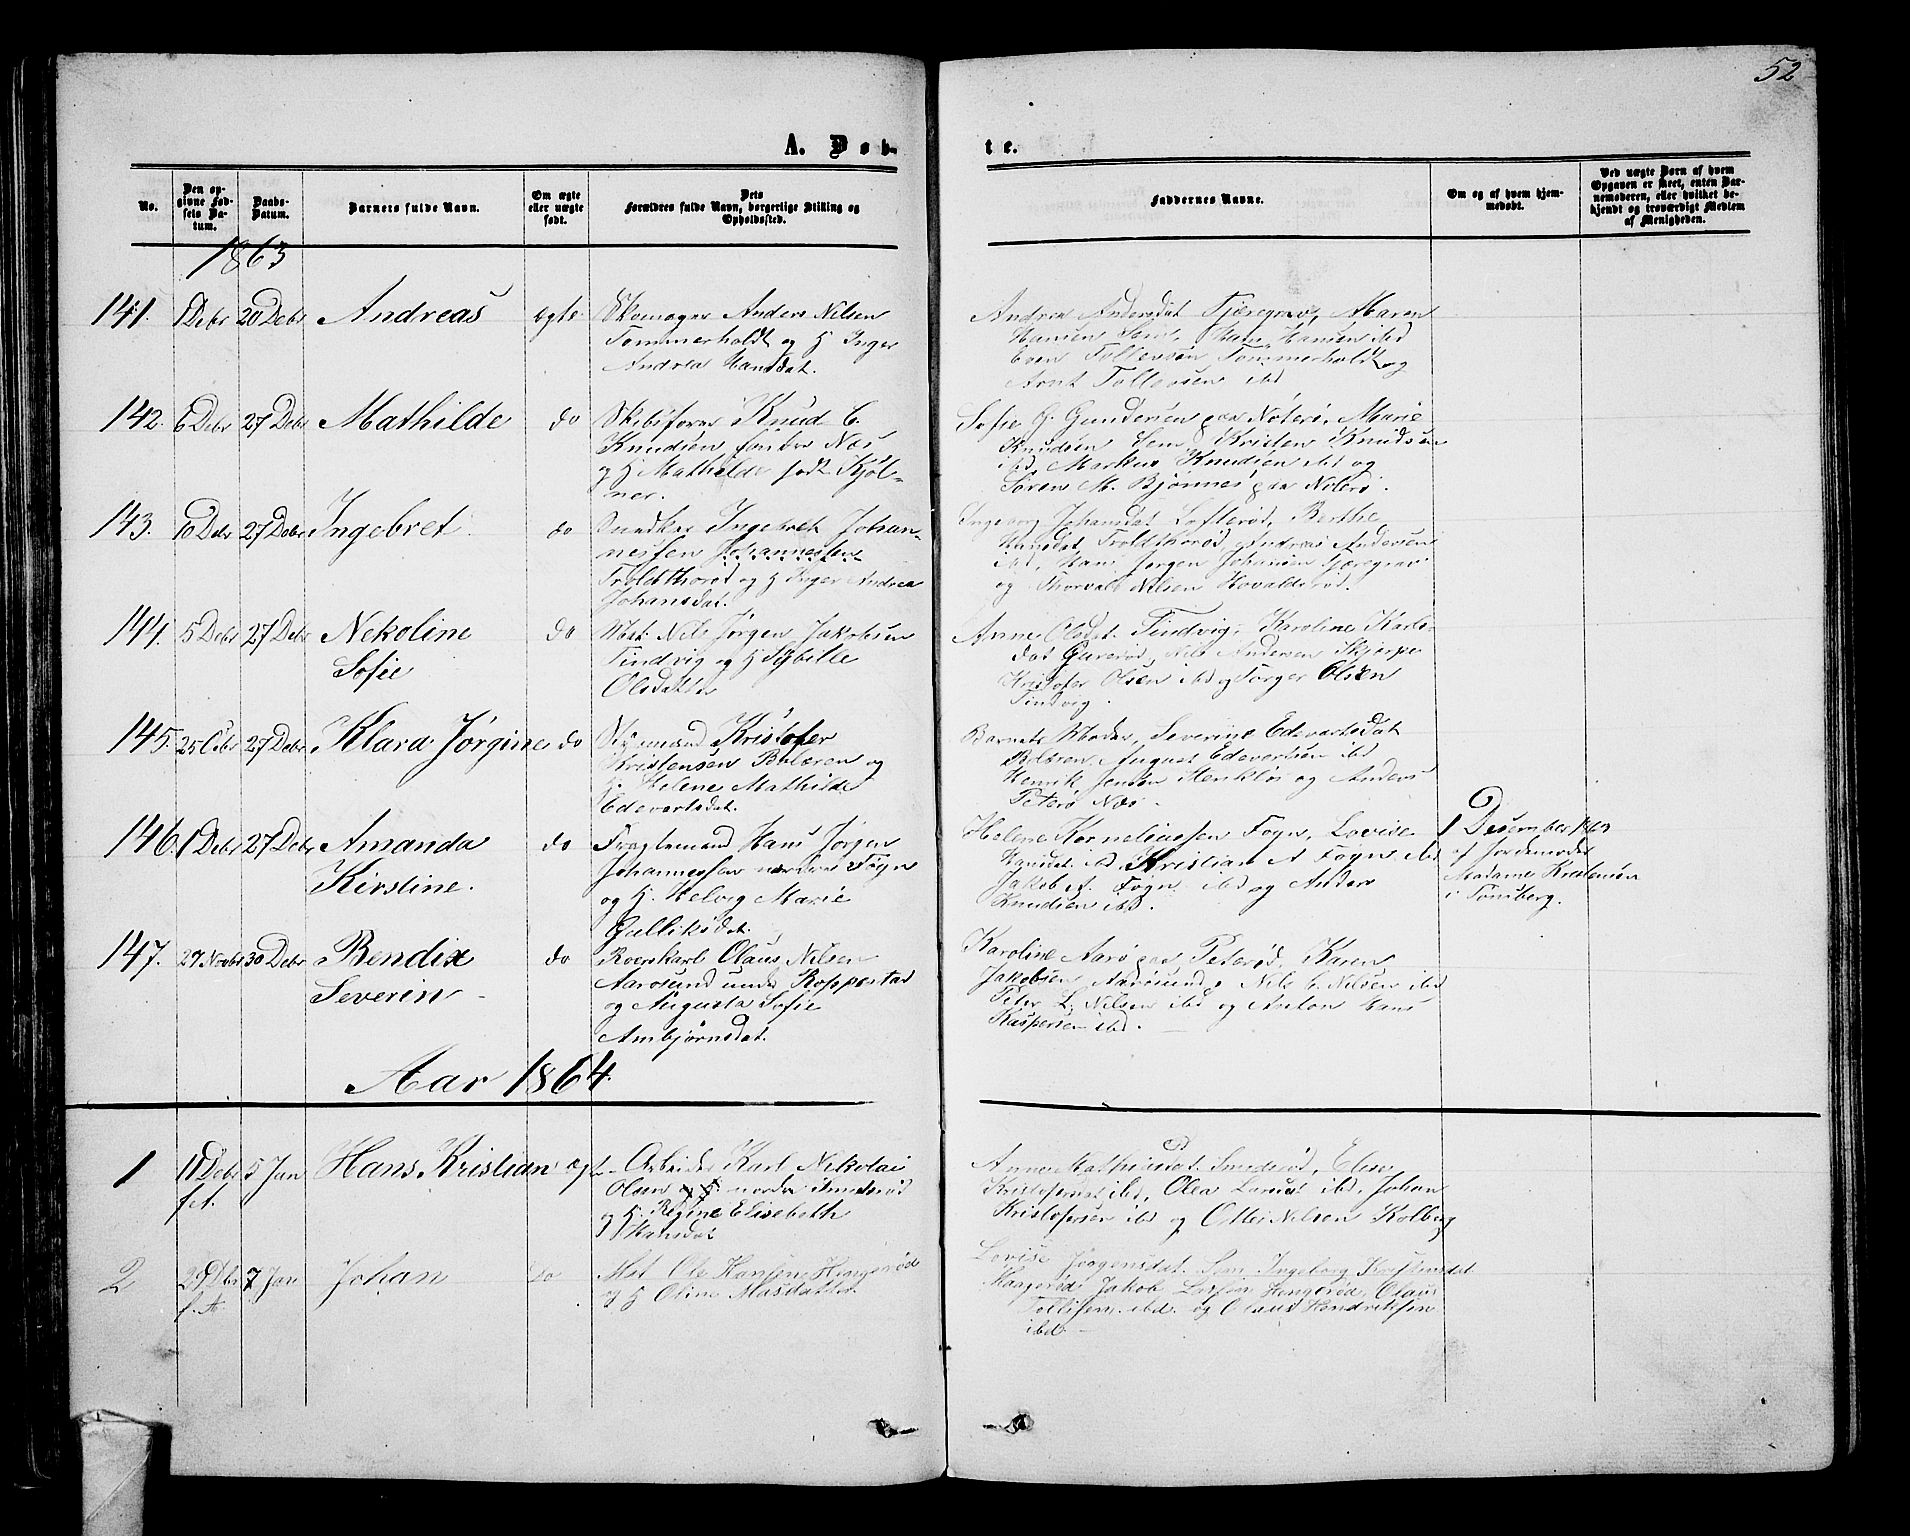 52
A. Døb-
te.
No.
Den opgivne Fødsels Datum.
Daabs-Datum.
Barnets fulde Navn.
Om ægte eller uægte født.
Dets Forældres fulde Navn, borgerlige Stilling og Opholdssted.
Faddernes Navne.
Om og af hvem hjemmedøbt.
Ved uægte Børn af hvem Opgaven er skeet, enten Barnemoderen, eller hvilket bekjendt og troværdigt Medlem af Menigheden.
1863
141. 1 Debr 20 Debr Andreas ægte
Skomager Anders Nilsen
Tommerholdt og H Inger
Andrea Hansdat.
Andrea Andersdat Fjæregrav, Maren
Hansen Sem, Hans Hansen ibd
Even Tollevsen Tommerholdt og
Arnt Tollevsen ibd
142. 6 Debr 27 Debr Mathilde do
Skibsfører Knud C.
Knudsen Næs
og H Mathilde født Kjøl-
ner.
Sofie G. Gundersen paa Nøterø, Marie
Knudsen Sem, Kristen Knudsen
ibd, Markus Knudsen ibd og
Søren M. Bjønnes paa Nøterø.
143. 10 Debr 27 Debr Ingebret do
Ingebret Johan-
nessen Johannessen
Troldthorød og H Inger Andrea
Johansdat.
Ingeborg Johansdat Lofterød, Berthe
Hansdat Troldthorød, Andreas Andersen
ibd, Hans Jørgen Johansen Fjæregrav
og Thorvald Nilsen Hovalderød.
144. 5 Debr 27 Debr Nekoline
Sofie
do
Mat. Nils Jørgen Jakobsen
Tindvig og H Sybille
Olsdatter
Anne Olsdat. Tindvig, Karoline Karls-
dat Gurerød, Nils Andersen Skjerpe
Kristofer Olsen ibd og Torger Olsen
Tindvig.
145. 25 Obr 27 Debr Klara Jørgine do
Styrmand Kristofer
Kristensen Bulæren og
H. Helene Mathilde
Edevartsdat.
Barnets Moder, Severine Edevartsdat
Bulæren, August Edevartsen ibd
Henrik Jensen og Anders
Peterø Næs.
146. 1 Debr 27 Debr Amanda
Kirstine.
do
Fragtemand Hans Jørgen
Johannessen nordre Føgn
og H. Helvig Marie
Gulliksdat.
Helene Korneliussen Føgn, Lovise
Hansdat ibd, Kristian A Føgn ibd
Jakob A. Føgn ibd og Anders
Knudsen ibd.
1 Desember 1863
af Jordemoder
Madame Kristensen
i Tønsberg.
147. 27 Novbr 30 Debr Bendix
Severin
do
Roerskarl Olaus Nilsen
Aarøsund under Roppestad
og Augusta Sofie
Ambjørnsdat.
Karoline Aarø paa Peterød, Karen
Jakobsen Aarøsund, Nils C. Nilsen ibd
Peter L. Nilsen ibd og Anton Hans
Kaspersen ibd.
Aar 1864.
1 11 Debr
f.A.
5 Jan Hans Kristian ægte
Arbeider Karl Nikolai
Olsen nordre Smederød
og H. Regine Elisabeth
Hansdat
Anne Mathisdat Smederød, Elen
Kristofersdat ibd, Olea Larsdat ibd, Johan
Kristofersen ibd og Otter Nilsen Kolberg
2 29 Dbr
f.A.
7 Jan Johan do
Mat Ole Hansen Hengerød
og H Oline Masdatter
Lovise Jørgensdat. Sem Ingeborg Kristensdat
Haagerød, Jakob Larsen Hengerød, Olaus
Tollifsen ibd. og Olaus Hendriksen
ibd.